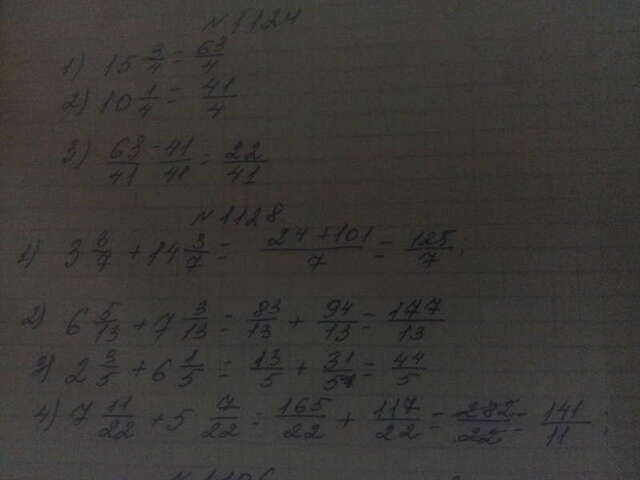 №1124
1) 15 3/4 = 63/4
2) 10 1/4 = 41/4
3) 63/41 - 41/41 = 22/41
№1128
1) 3 3/7 + 14 3/7 = 24+101/7 = 125/7.
2) 6 5/13 + 7 3/13 = 83/13 + 94/13 = 177/13
3) 2 3/5 + 6 1/5 = 13/5 + 31/5 = 44/5
4) 7 11/22 + 5 7/22 = 165/22 + 117/22 = 282/22 = 141/11;